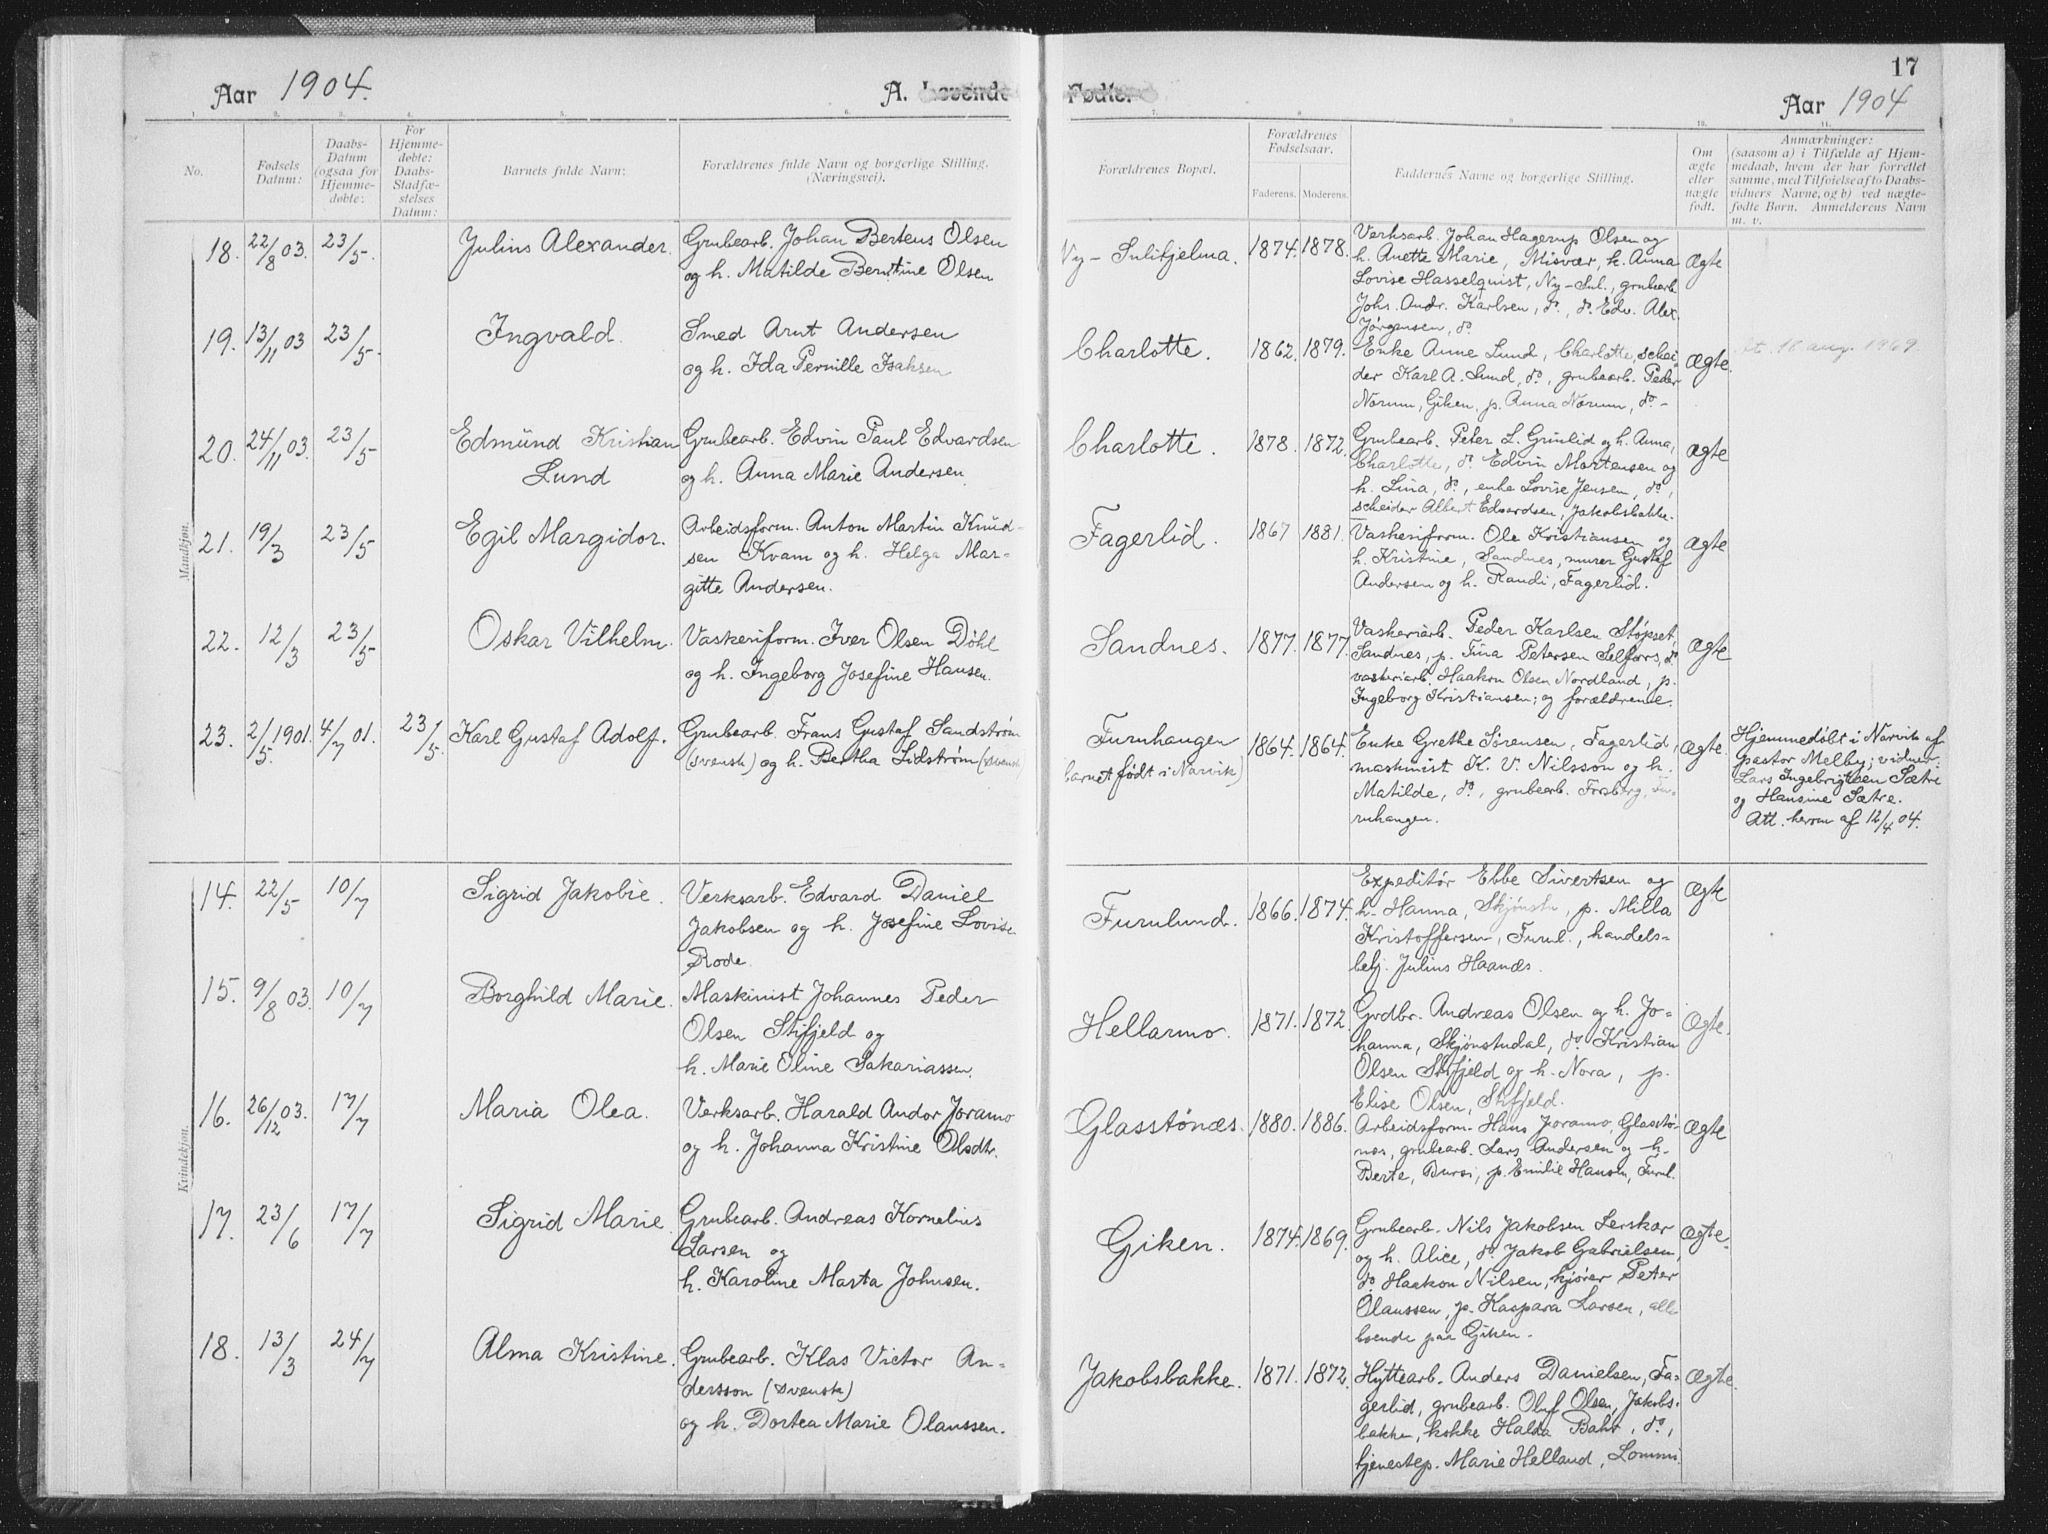 17
Aar 1904.
A. Levende Fødte.
Aar 1904
1. 2. 3. 4. 5. 6. 7. 8. 9. 10. 11.
No.
Fødsels Datum:
Daabs-Datum (ogsaa for Hjemmedøbte:
For Hjemmedøbte: Daabs-Stadfæstelses Datum:
Barnets fulde Navn:
Forældrenes fulde Navn og borgerlige Stilling. (Næringsvei).
Forældrenes Bopæl.
Forældrenes Fødselsaar.
Faderens. Moderens.
Faddernes Navne og borgerlige Stilling.
Om ægte eller uægte født.
Anmærkninger: (saasom a) i Tilfælde af Hjemmedaab, hvem der har forrettet samme, med Tilføielse af to Daabsvidners Navne, og b) ved uægtefødte Børn. Anmelderens Navn m. v.
Mandkjøn.
18. 22/8 03. 23/5. Julius Alexander. Grubearb. Johan Berteus Olsen
og h. Matilde Berntine Olsen
Ny-Sulitjelma. 1874. 1878. Verksarb. Johan Hagerup Olsen og
h. Anette Marie, Misvær, h. Anna
Lovise Hasselquist, Ny-Sul., grubearb.
Johs. Andr. Karlsen, do, do Edv. Alex.
Jørgensen, do
Ægte
19. 13/11 03 23/5. Ingvald. Smed Arnt Andersen
og h. Ida Pernille Isaksen
Charlotte. 1862. 1879. Enke Anne Lund, Charlotte, schei-
der Karl A. Lund, do, grubearb. Peder
Norum, Giken, p. Anna Norum, do-
Ægte.
18 aug. 1969.
20. 24/11 03. 23/5 Edmund Kristian
Lund
Grubearb. Edvin Paul Edvardsen
og h. Anna Marie Andersen.
Charlotte. 1878. 1872. Grubearb. Peter L. Grünlid og h. Anna,
Charlotte, do Edvin Mortensen og
h. Lina, do, enke Lovise Jensen, do,
scheider Albert Edvardsen, Jakobsbakke.
Ægte
21. 19/3 23/5 Egil Margidor. Arbeidsform. Anton Martin Knud-
sen Kvam og h. Helga Mar-
gitte Andersen.
Fagerlid. 1867 1881. Vaskeriform. Ole Kristiansen og
h. Kristine, Sandnes, murer Gustaf
Andersen og h. Randi, Fagerlid.
Ægte
22. 12/3 23/5 Oskar Vilhelm. Vaskeriform. Iver Olsen Döhl
og h. Ingeborg Josefine Hansen.
Sandnes. 1877. 1877. Vaskeriarb. Peder Karlsen Støpset,
Sandnes, p. Tina Petersen Selfors, do
vaskeriarb. Haakon Olsen Nordland, p.
Ingeborg Kristiansen; og forældrene.
Ægte
23. 2/5 1901. 4/7 01. 23/5. Karl Gustaf Adolf. Grubearb. Frans Gustaf Sandstrøm
(svensk) og h. Bertha Lidstrøm (svensk)
Furuhaugen
barnet født i Narvik)
1864. 1864. Enke Grethe Sørensen, Fagerlid,
maskinist K. V. Nilsson og h.
Matilde, do, grubearb. Froberg, Fu-
ruhaugen.
Ægte.
Hjemmedøbt i Narvik af
pastor Melby; vidner:
Lars Ingebrigtsen Sætre
og Hansine Sætre.
Att. herom af 12/4 04.
Kvindekjøn.
14. 22/5 10/7 Sigrid Jakobie. Verksarb. Edvard Daniel
Jakobsen og h. Josefine Lovise
Rode.
Furulund. 1866. 1874. Expeditør Ebbe Sivertsen og
h. Hanna, Skjønstu, p. Milla
Kristoffersen, Furul., handels-
betj. Julius Haanæs.
Ægte
15. 9/8 03. 10/7 Borghild Marie. Maskinist Johannes Peder
Olsen Stifjeld og
h. Marie Oline Sakariassen.
Hellarmo. 1871. 1872. Grdbr. Andreas Olsen og h. Jo-
hanna, Skjønstudal, do Kristian
Olsen Stifjeld og h. Nora, p.
Elise Olsen, Stifjeld.
Ægte.
16. 26/12 03. 17/7 Maria Olea. Verksarb. Harald Andor Joramo
og h. Johanna Kristine Olsdtr.
Glasstønæs. 1880. 1886. Arbeidsform. Hans Joramo, Glasstø-
næs, grubearb. Lars Andersen og h.
Berte, Bursi, p. Emilie Hansen, Furul.
Ægte
17. 23/6 17/7 Sigrid Marie Grubearb. Andreas Kornelius
Larsen og
h. Karoline Marta Johnsen.
Giken. 1874. 1869. Grubearb. Nils Jakobsen Lerskar
og h. Alice, do Jakob Gabrielsen,
do Haakon Nilsen, kjører Peter
Olaussen, p. Kaspara Larsen, alle
boende paa Giken.
Ægte.
18. 13/3 24/7 Alma Kristine. Grubearb. Klas Victor An-
dersson (svensk)
og h. Dortea Marie Olaussen.
Jakobsbakke. 1871. 1872. Hyttearb. Anders Danielsen, Fa-
gerlid, grubearb. Oluf Olsen, Jakobs-
bakken, kokke Halda Bahr, do,
tjenestep. Marie Helland, Lommi.
Ægte.